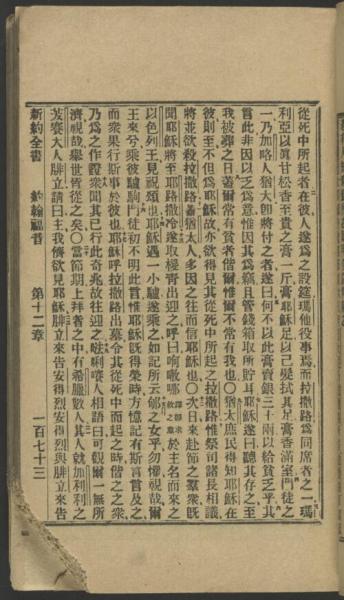 從死中所起者在彼人遂爲之設筵瑪他役事焉而拉撒路爲同席者之一瑪
利亞以眞甘松香至貴之膏一斤膏耶穌足以己髮拭其足膏香滿室門徒之
一乃加略人猶大卽將付之者遂曰何不以此膏賣銀三十兩以給貧乏乎其
言此非因以乏爲意惟因其爲竊且管錢箱取所貯耳耶穌遂曰聽其存之至
我被葬之日蓋爾常有貧者偕爾惟爾不常有我也〇猶太庶民得知耶穌在
彼則至不但爲耶穌故亦欲得見其從死中所起之拉撒路惟祭司諸長相議
將並欲殺拉撒路蓋猶太人多因之往而信耶穌也〇次日來赴節之羣衆既
聞耶穌將至耶路撒冷遂取椶青出迎之呼曰唏㗒哪譯卽求救之意於主名而來之
以色列王見祝頌也耶穌遇一小驢遂乘之如記所云郇之女乎勿懼視哉爾
王來兮乘彼驢駒門徒初不明此言惟耶穌既得榮時方憶記有斯言言及之
而衆果行斯事於彼也耶穌呼拉撒路出墓令其從死中而起之時偕之之衆
乃爲之作證衆聞其已行此奇兆故往迎之𠵽唎賽人相語曰可觀爾一無所
濟視哉舉世皆從之矣〇當節期上拜者之中有希臘數人其人就加利利之
芨賽大人腓立請曰主我儕欲見耶穌腓立來告安得烈安得烈與腓立來告
新約全書 約翰福音 第十二章 一百七十三